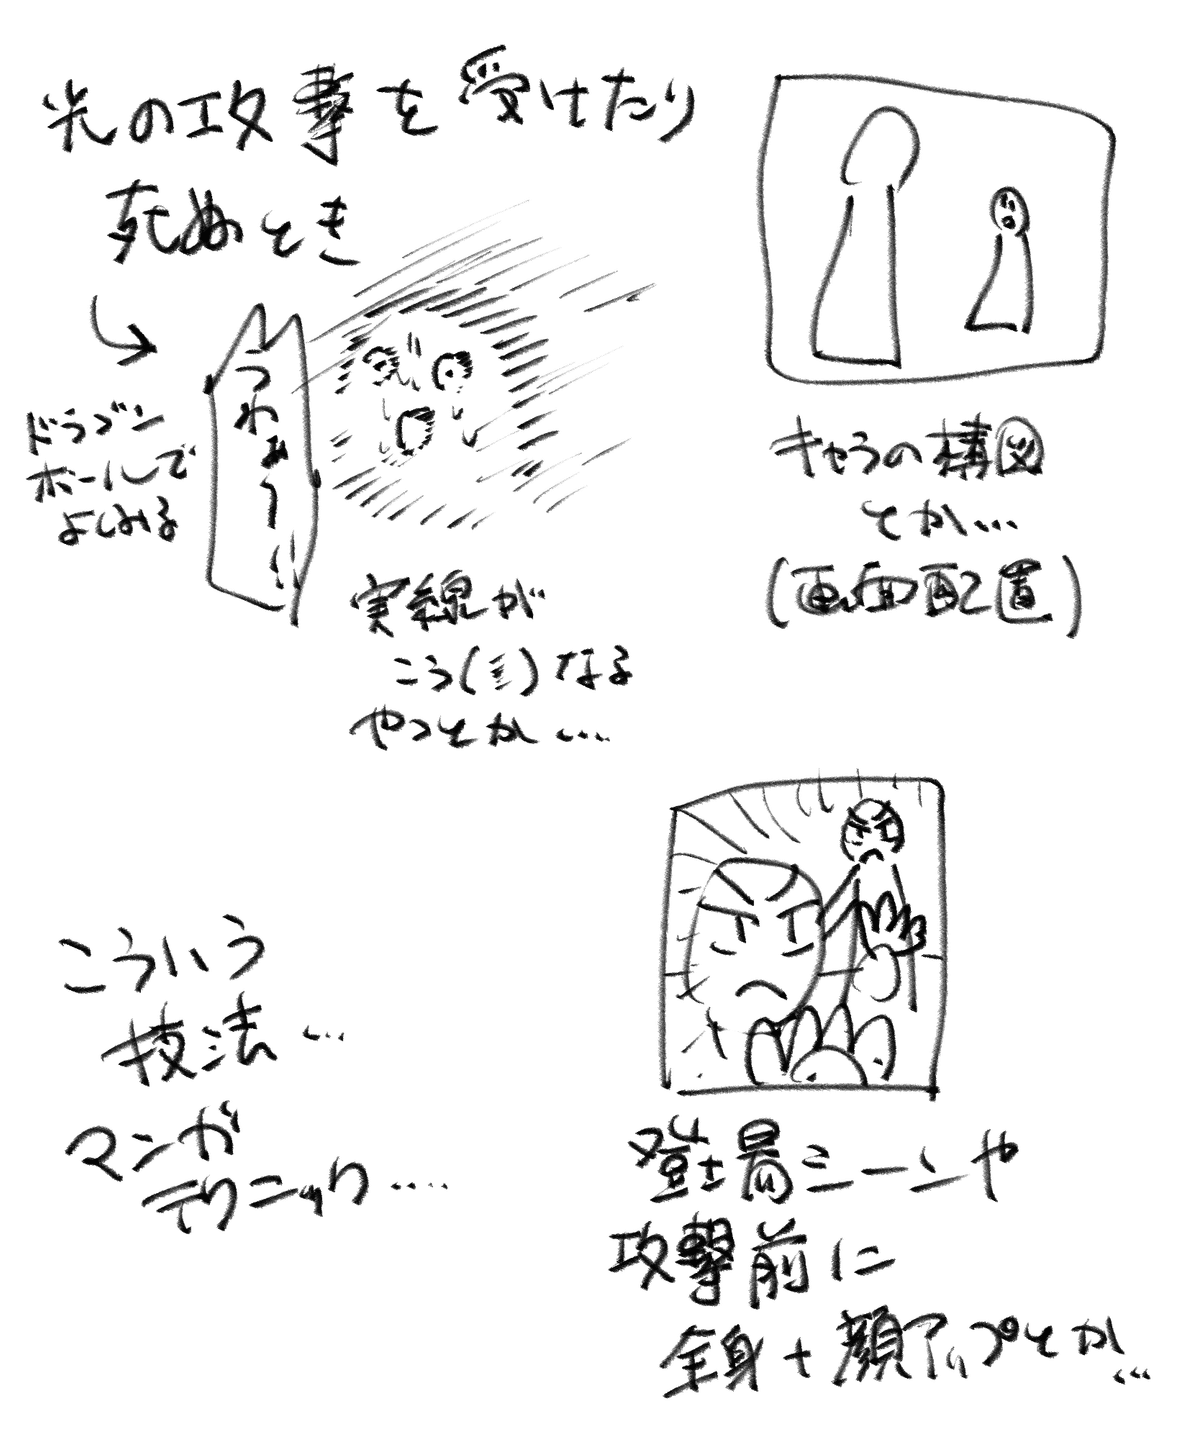 光の攻撃を受けたり
死ぬとき
ドラゴン
ボールで
よくみる
うわぁーーい
実線が
こう(ミ)なる
やつとか…
キャラの構図
とか…
(画面配置)
こういう
技法…
マンガ
テクニック…
登場シーンや
攻撃前に
全身+顔アップとか…